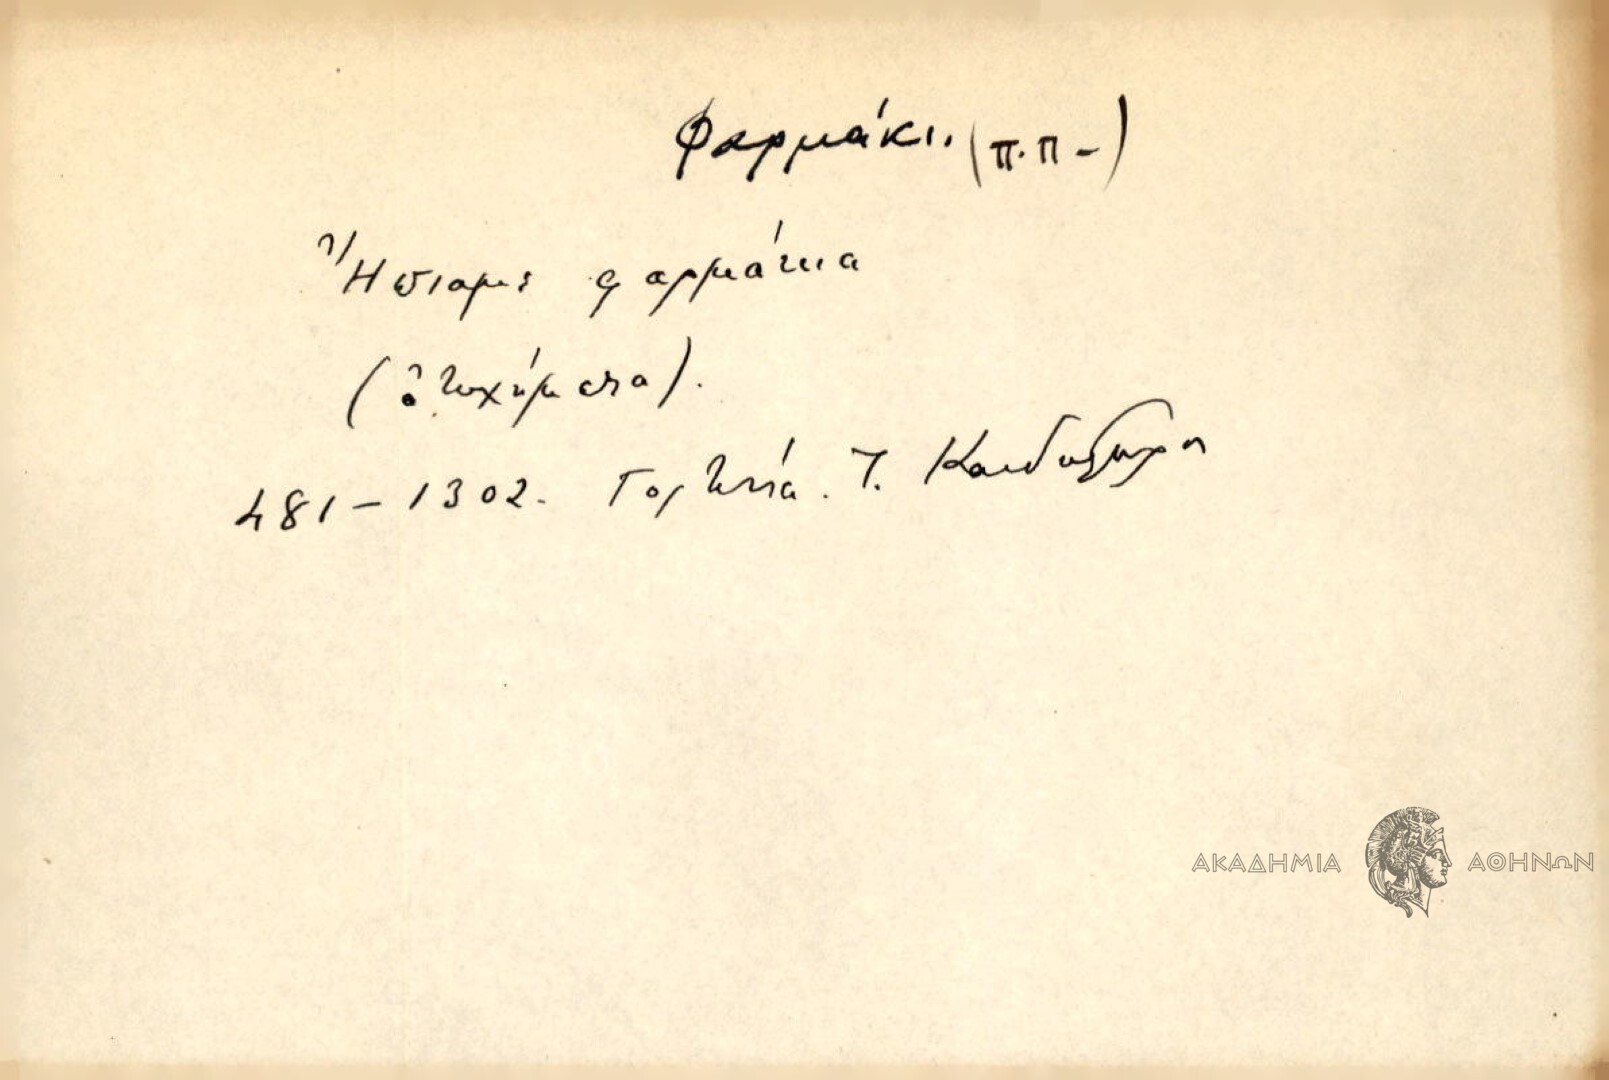 Φαρμάκι. (π.π-)
Ἤπιαμε φαρμάκια
(ἀτυχήματα).
481-1302. Γορτυνία. Τ. Κανδηλώρα
ΑΚΑΔΗΜΙΑ ΑΘΗΝΩΝ